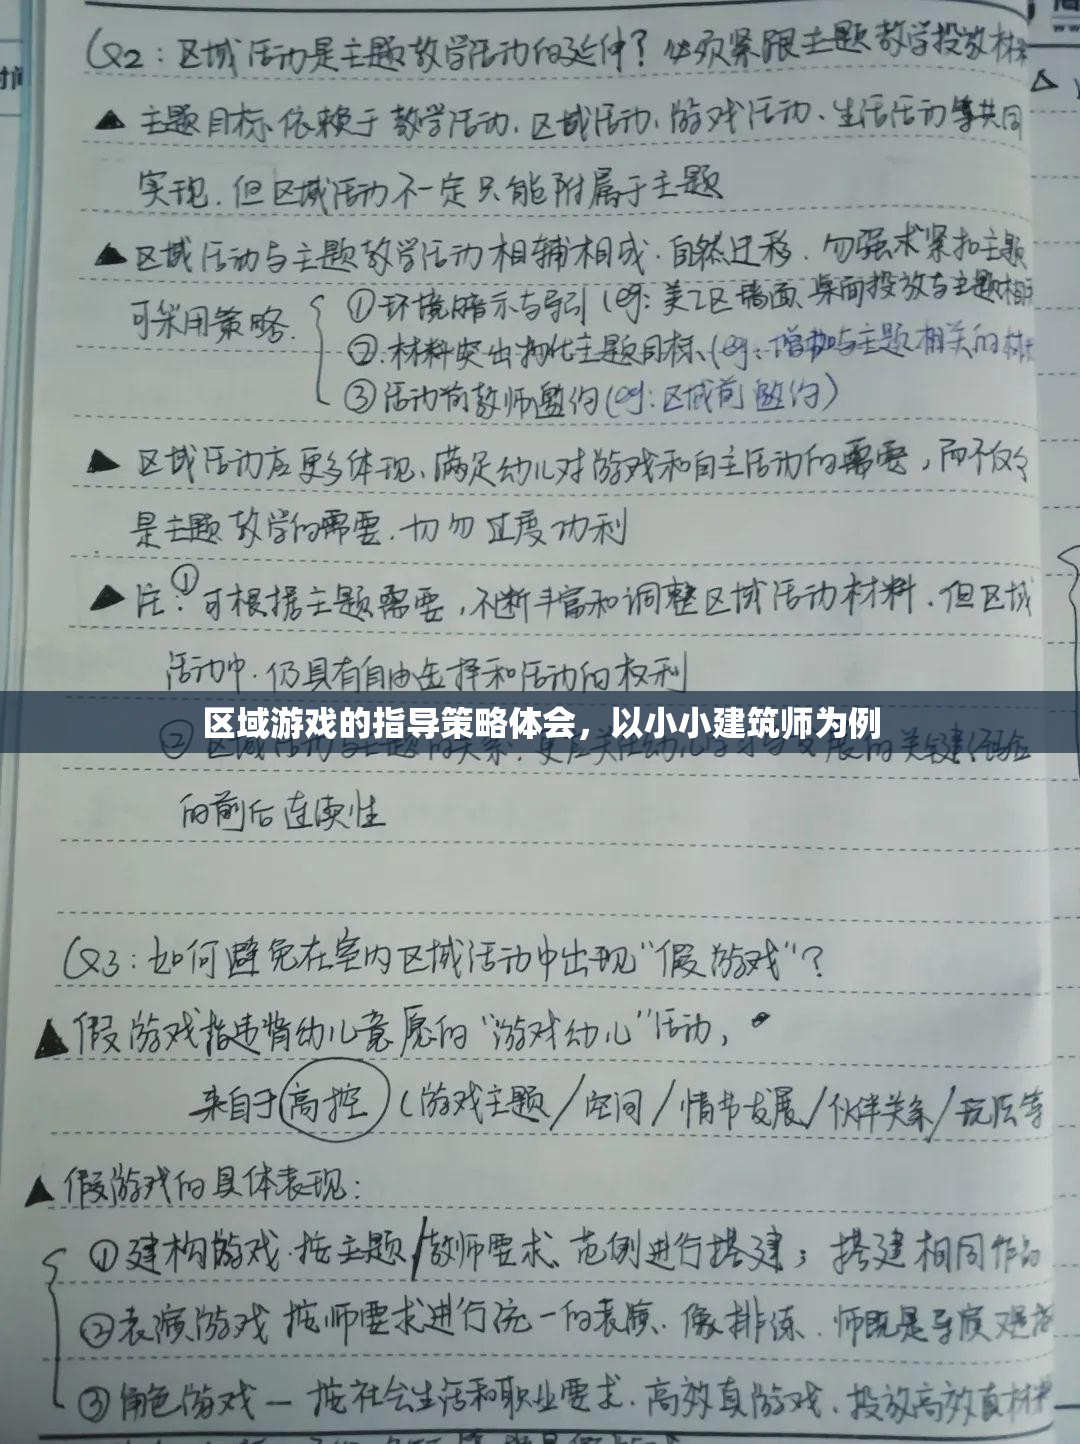 Q2：区域活动是主题教学活动的延伸？必须紧跟主题教学投放材
▲ 主题目标依赖于教学活动、区域活动、游戏活动、生活活动等共同
实现，但区域活动不一定只能附属于主题
▲ 区域活动与主题教学活动相辅相成，自然迁移，勿强求紧扣主题
可采用策略
①环境暗示与导引（eg：美工区墙面、桌面投放与主题相
②材料突出物化主题目标（eg：增加与主题相关的材
③活动前教师邀约（eg：区域前邀约）
▲ 区域活动应更多体现、满足幼儿对游戏和自主活动的需要，而不仅
是主题教学的需要，切勿过度功利
▲ 注：①可根据主题需要，不断丰富和调整区域活动材料，但区域
活动中，仍具有自由选择和活动的权利
区域游戏的指导策略体会，以小小建筑师为例
②区域活动与主题的关系，更应关注幼儿学习与发展的关键经验
的前后连续性
Q3：如何避免在室内区域活动中出现“假游戏”？
▲ 假游戏指违背幼儿意愿的“游戏幼儿”活动，
来自于高控（游戏主题/空间/情节发展/伙伴关系/玩法等
▲ 假游戏的具体表现：
①建构游戏 按主题/教师要求、范例进行搭建；搭建相同作品
②表演游戏 按师要求进行统一的表演，像排练，师既是导演又是
③角色游戏 — 按社会生活和职业要求，高效真游戏，投放高效真材